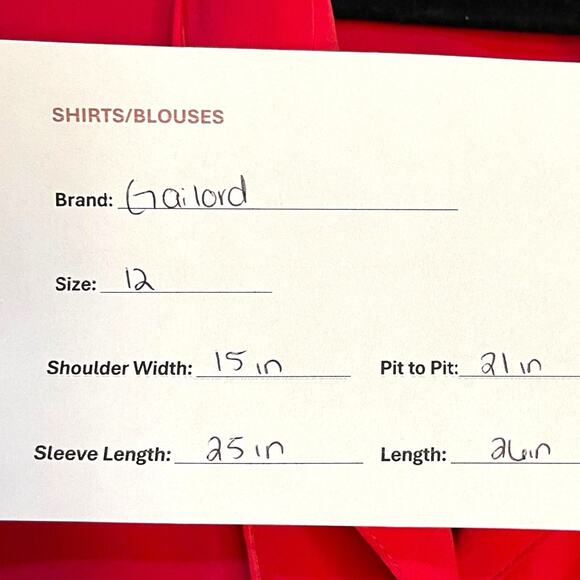 SHIRTS/BLOUSES
Brand: Gailord
Size: 12
Shoulder Width: 15 in Pit to Pit: 21 in
Sleeve Length: 25 in Length: 26in